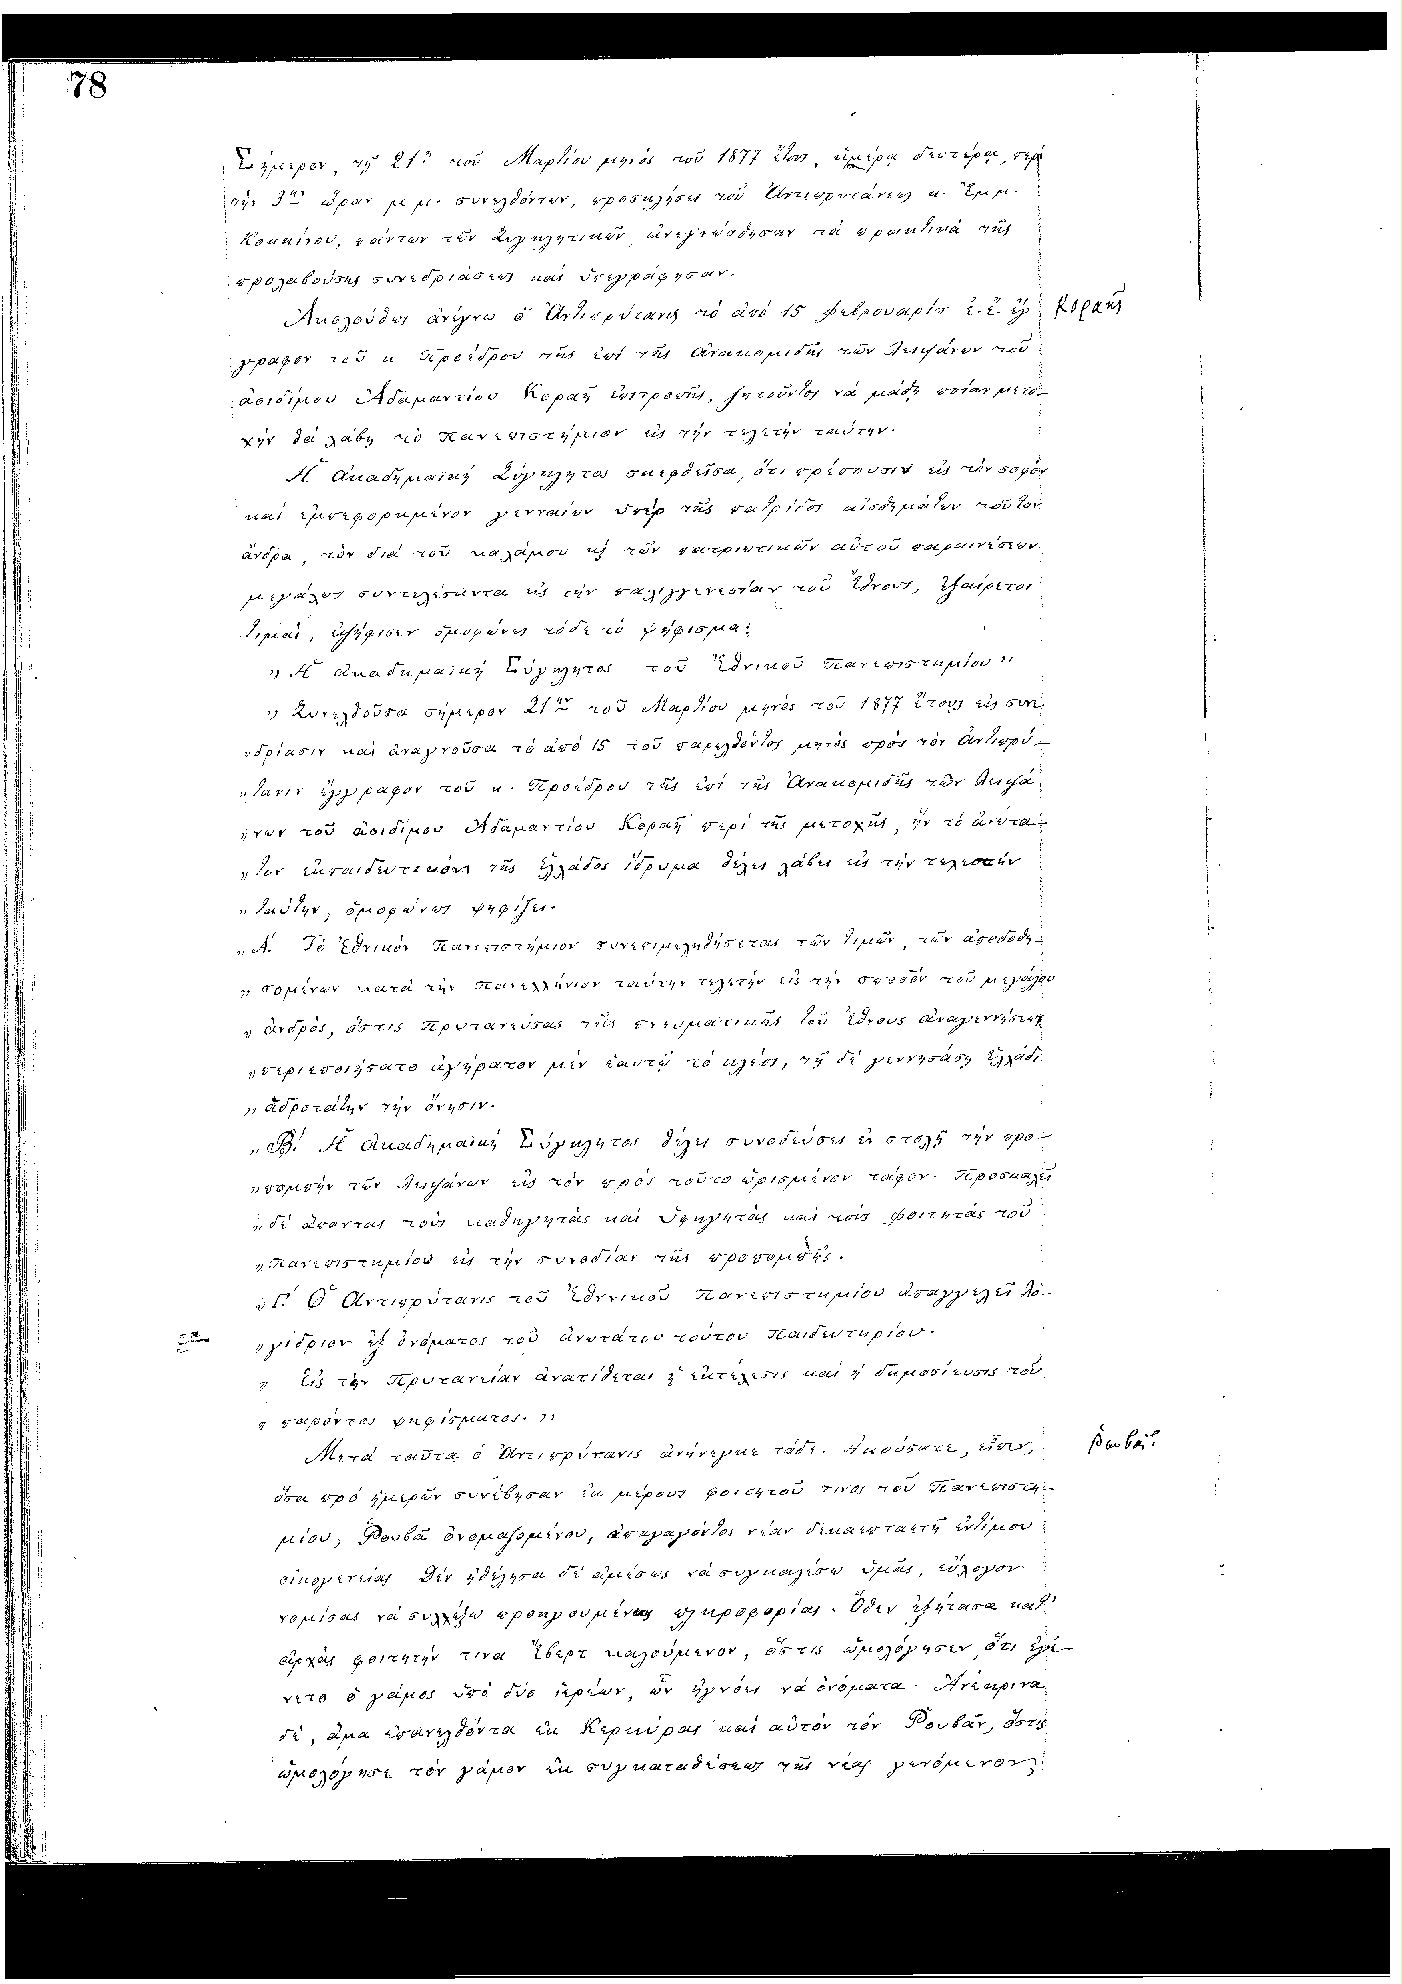 78
Σήμερον, τῇ 21ῃ τοῦ Μαρτίου μηνὸς τοῦ 1877 ἔτους, ἡμέρᾳ δευτέρᾳ, περὶ
τὴν 3ην ὥραν μ.μ. συνελθόντων, προσκλήσει τοῦ Ἀντιπρυτάνεως κ. Ἐμμ.
Κοκκίνου, πάντων τῶν Συγκλητικῶν, ἀνεγνώσθησαν τὰ πρακτικὰ τῆς
προλαβούσης συνεδριάσεως καὶ ὑπεγράφησαν.
Ἀκολούθως ἀνέγνω ὁ Ἀντιπρύτανις τὸ ἀπὸ 15 Φεβρουαρίου ἐ.ἔ. ἔγ
Κοραῆς
γραφον τοῦ κ. Προέδρου τῆς ἐπὶ τῆς ἀνακομιδῆς τῶν λειψάνων τοῦ
ἀοιδίμου Ἀδαμαντίου Κοραῆ ἐπιτροπῆς, ζητοῦντος νὰ μάθῃ ποίαν μετο-
χὴν θὰ λάβῃ τὸ Πανεπιστήμιον εἰς τὴν τελετὴν ταύτην.
Ἡ Ἀκαδημαϊκὴ Σύγκλητος σκεφθεῖσα, ὅτι πρέπουσιν εἰς τὸν σοφὸν
καὶ ἐμπεφορημένον γενναίων ὑπὲρ τῆς πατρίδος αἰσθημάτων τοῦτον
ἄνδρα, τὸν διὰ τοῦ καλάμου κỳ τῶν πατριωτικῶν αὐτοῦ παραινέσεων
μεγάλως συντελέσαντα εἰς τὴν παλιγγενεσίαν τοῦ Ἔθνους, ἐξαίρετοι
τιμαὶ, ἐψήφισεν ὁμοφώνως τόδε τὸ ψήφισμα:
" Ἡ Ἀκαδημαϊκὴ Σύγκλητος τοῦ Ἐθνικοῦ Πανεπιστημίου "
" Συνελθοῦσα σήμερον 21ην τοῦ Μαρτίου μηνὸς τοῦ 1877 ἔτους εἰς συνε
"δρίασιν καὶ ἀναγνοῦσα τὸ ἀπὸ 15 τοῦ παρελθόντος μηνὸς πρὸς τὸν Ἀντιπρύ-
"τανιν ἔγγραφον τοῦ κ. Προέδρου τῆς ἐπὶ τῆς Ἀνακομιδῆς τῶν λειψά
"νων τοῦ ἀοιδίμου Ἀδαμαντίου Κοραῆ περὶ τῆς μετοχῆς, ἣν τὸ ἀνώτα-
"τον ἐκπαιδευτικὸν τῆς Ἑλλάδος ἵδρυμα θέλει λάβει εἰς τὴν τελετὴν
"ταύτην, ὁμοφώνως ψηφίζει.
"Αʹ. Τὸ Ἐθνικὸν Πανεπιστήμιον συνεπιμεληθήσεται τῶν τιμῶν, τῶν ἀποδοθη-
" σομένων κατὰ τὴν πανελλήνιον ταύτην τελετὴν εἰς τὴν σποδὸν τοῦ μεγάλου
" ἀνδρὸς, ὅστις πρυτανεύσας τῆς πνευματικῆς τοῦ Ἔθνους ἀναγεννήσεως
"περιεποιήσατο ἀγήρατον μὲν ἑαυτῷ τὸ κλέος, τῇ δὲ γεννησάσῃ Ἑλλάδι
" ἁδροτάτην τὴν ὄνησιν.
"Βʹ. Ἡ Ἀκαδημαϊκὴ Σύγκλητος θέλει συνοδεύσει ἐν στολῇ τὴν προ-
"πομπὴν τῶν λειψάνων εἰς τὸν πρὸς τοῦτο ὡρισμένον τάφον. Προσκαλεῖ
"δὲ ἅπαντας τοὺς καθηγητὰς καὶ ὑφηγητὰς καὶ τοὺς φοιτητὰς τοῦ
"Πανεπιστημίου εἰς τὴν συνοδίαν τῆς προπομπῆς.
"Γʹ. Ὁ Ἀντιπρύτανις τοῦ Ἐθνικοῦ Πανεπιστημίου ἀπαγγελεῖ λο-
"γίδριον ἐξ ὀνόματος τοῦ ἀνωτάτου τούτου Παιδευτηρίου.
" Εἰς τὴν Πρυτανείαν ἀνατίθεται ἡ ἐκτέλεσις καὶ ἡ δημοσίευσις τοῦ
" παρόντος ψηφίσματος. "
Μετὰ ταῦτα ὁ Ἀντιπρύτανις ἀνήνεγκε τάδε. Ἀκούσατε, εἶπεν,
Ρουβᾶς.
ὅσα πρὸ ἡμερῶν συνέβησαν ἐκ μέρους φοιτητοῦ τινος τοῦ Πανεπιστη-
μίου, Ῥουβᾶ ὀνομαζομένου, ἀπαγαγόντος νέαν δεκαεπταετῆ ἐντίμου
οἰκογενείας. Δὲν ἠθέλησα δὲ ἀμέσως νὰ συγκαλέσω ὑμᾶς, εὔλογον
νομίσας νὰ συλλέξω προηγουμένως πληροφορίας. Ὅθεν ἐξήτασα κατ'
ἀρχὰς φοιτητήν τινα Ἔβερτ καλούμενον, ὅστις ὡμολόγησεν, ὅτι ἐγέ-
νετο ὁ γάμος ὑπὸ δύο ἱερέων, ὧν ἠγνόει τὰ ὀνόματα. Ἀνέκρινα
δὲ, ἅμα ἐπανελθόντα ἐκ Κερκύρας καὶ αὐτὸν τὸν Ῥουβᾶν, ὅστις
ὡμολόγησε τὸν γάμον ἐκ συγκαταθέσεως τῆς νέας γενόμενον